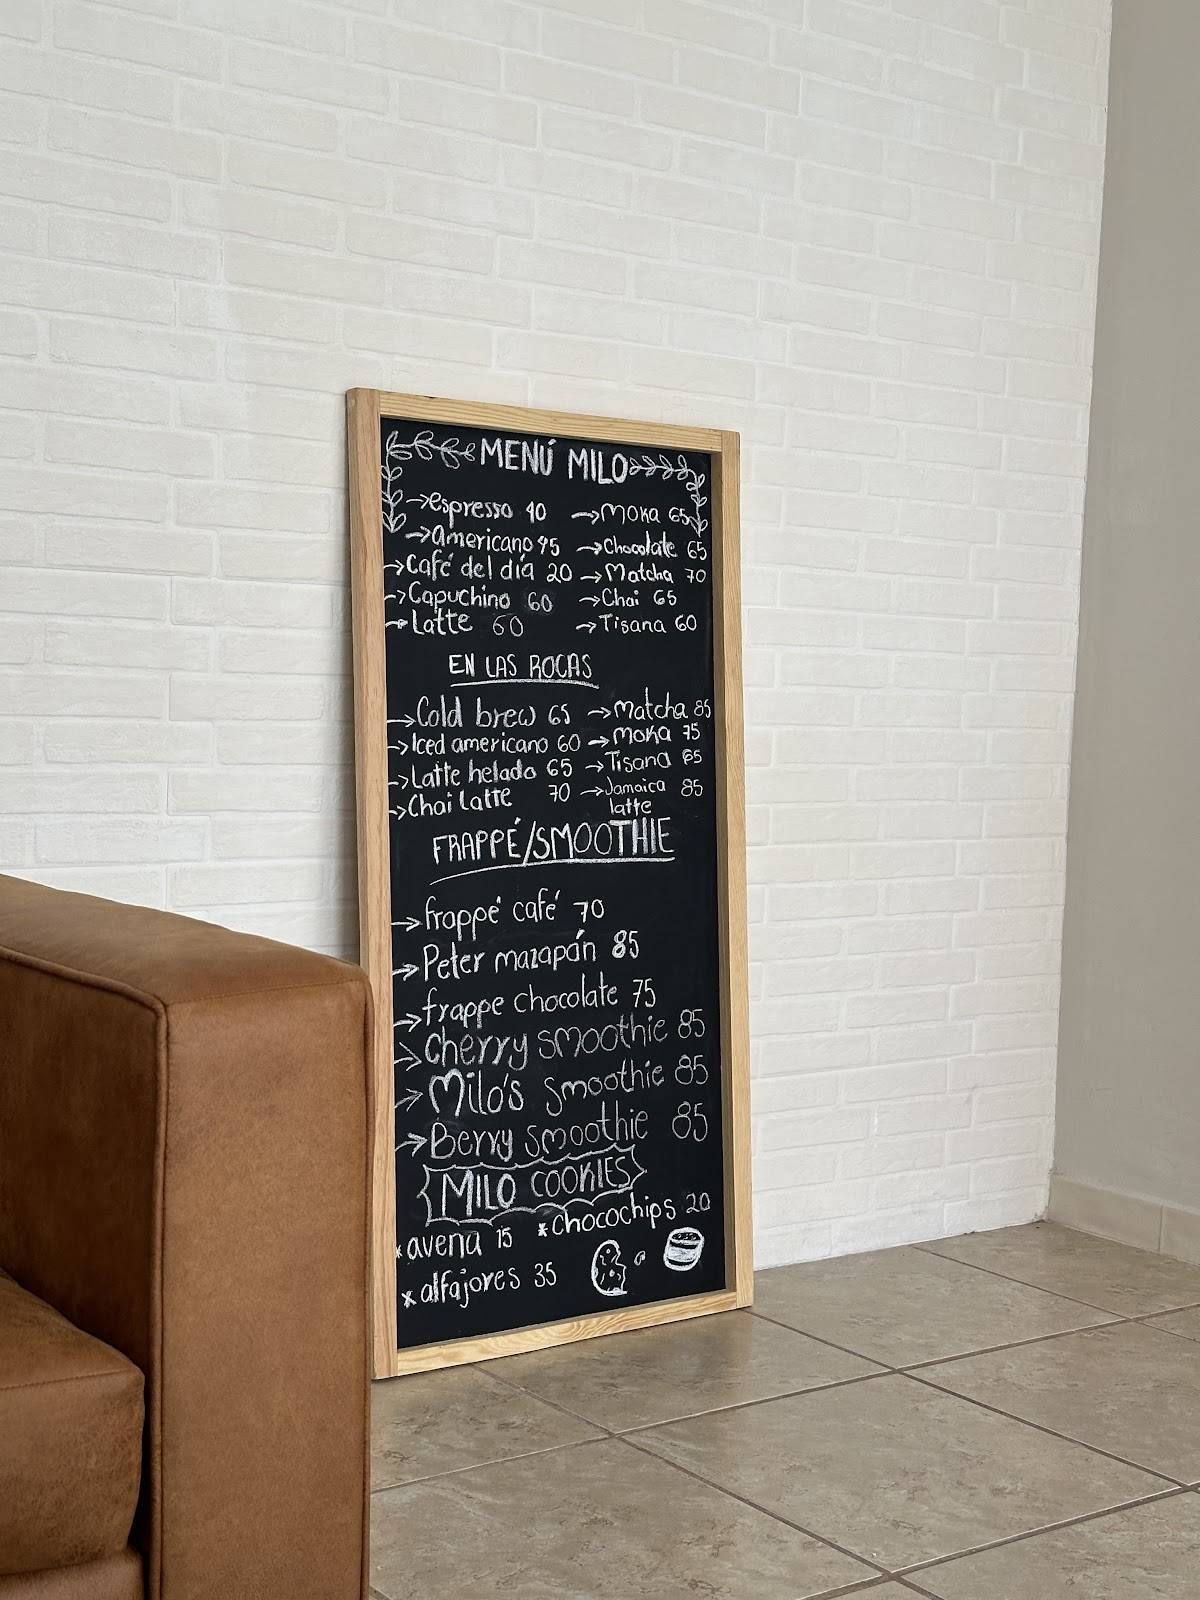 MENÚ MILO
→espresso 40 →Moka 65
→Americano 45 →Chocolate 65
→Café del día 20 →Matcha 70
→Capuchino 60 →Chai 65
→Latte 60 →Tisana 60
EN LAS ROCAS
→Cold brew 65 →Matcha 85
→Iced americano 60 →Moka 75
→Latte helado 65 →Tisana 65
→Chai Latte 70 →Jamaica 85
latte
FRAPPÉ/SMOOTHIE
→frappé café 70
→Peter mazapán 85
→frappe chocolate 75
→Cherry smoothie 85
→Milo's smoothie 85
→Berry smoothie 85
MILO COOKIES
*avena 15 *chocochips 20
*alfajores 35